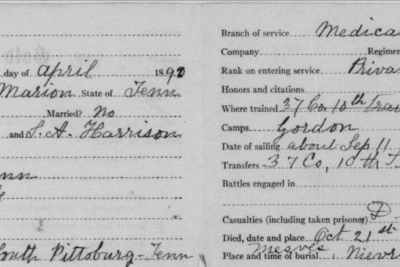 day of April 1892
Marion State of Tenn
Married? No
and S. A. Harrison
nn
South Pittsburg-Tenn
Branch of service Medica
Company Regimen
Rank on entering service Priva
Honors and citations
Where trained 37 Co, 10th Trai
Camps Gordon
Date of sailing about Sep 11
Transfers 37 Co, 10th T
Battles engaged in
Casualties (including taken prisoner) D
Died, date and place Oct 21st
Mesves
Place and time of burial Nievr